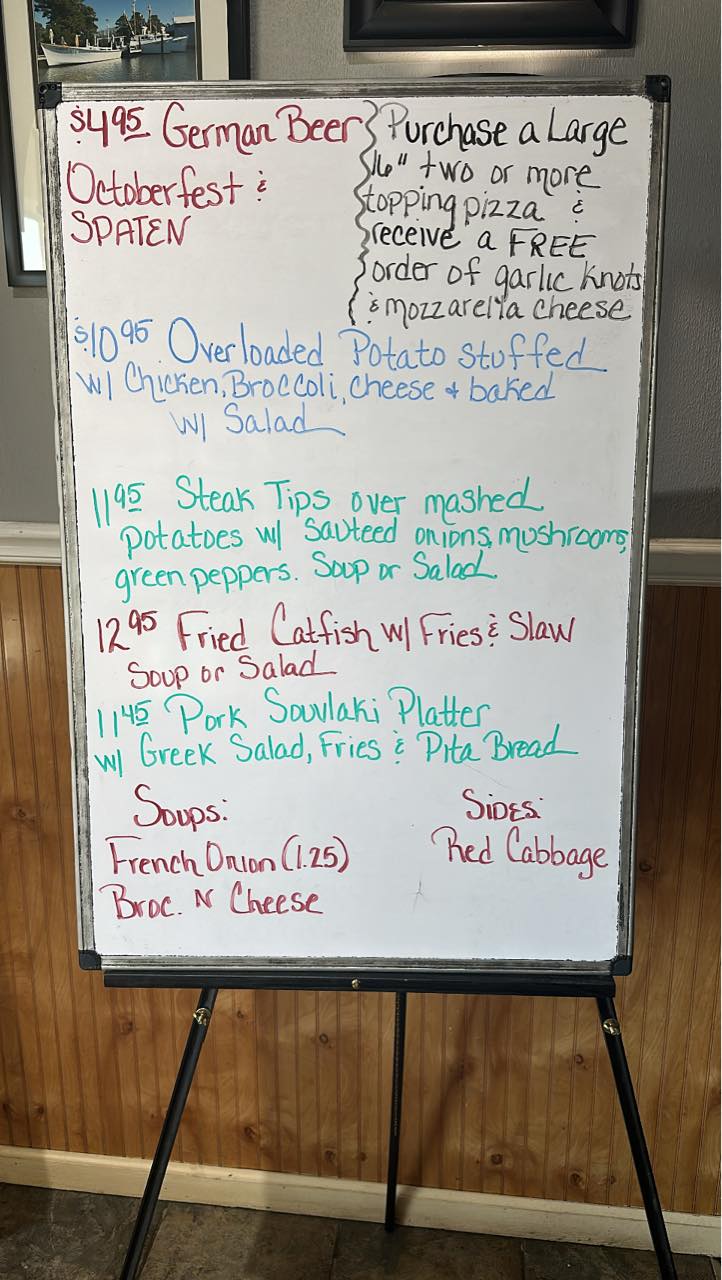 $4.95 German Beer
Octoberfest &
SPATEN
Purchase a Large
16" two or more
topping pizza &
receive a FREE
order of garlic knots
& mozzarella cheese
$10.95 Overloaded Potato stuffed
w/ Chicken, Broccoli, cheese & baked
w/ Salad
11.95 Steak Tips over mashed
potatoes w/ sauteed onions, mushrooms,
green peppers. Soup or Salad
12.95 Fried Catfish w/ Fries & Slaw
Soup or Salad
11.45 Pork Souvlaki Platter
w/ Greek Salad, Fries & Pita Bread
Soups:
French Onion (1.25)
Broc. N Cheese
SIDES:
Red Cabbage